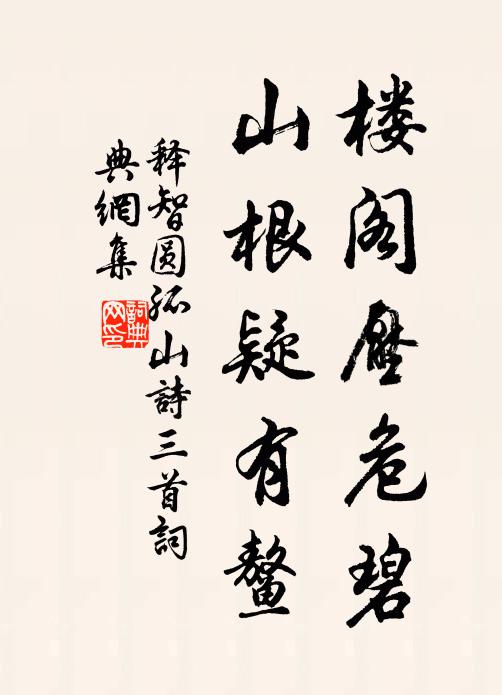 楼阁壓危碧
山根疑有鳌
释智圆孤山詩三首詞
典網集
詞典网印